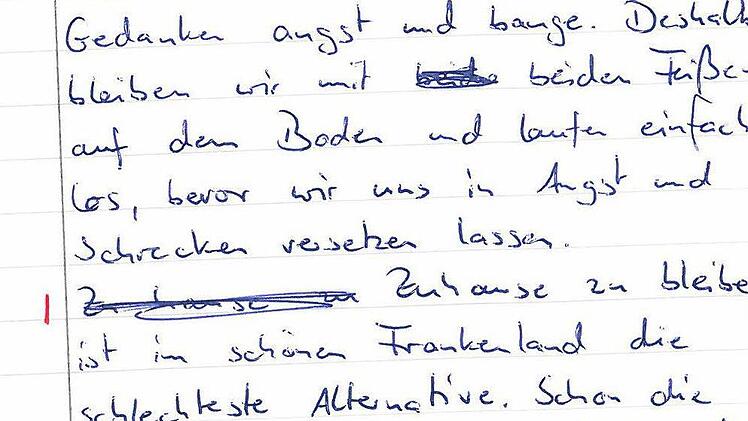 Gedanken angst und bange. Deshalb
bleiben wir mit beiden Füße
auf dem Boden und laufen einfach
los, bevor wir uns in Angst und
Schrecken versetzen lassen.
Zuhause zu bleibe
ist im schönen Frankenland die
schlechteste Alternative. Schon die